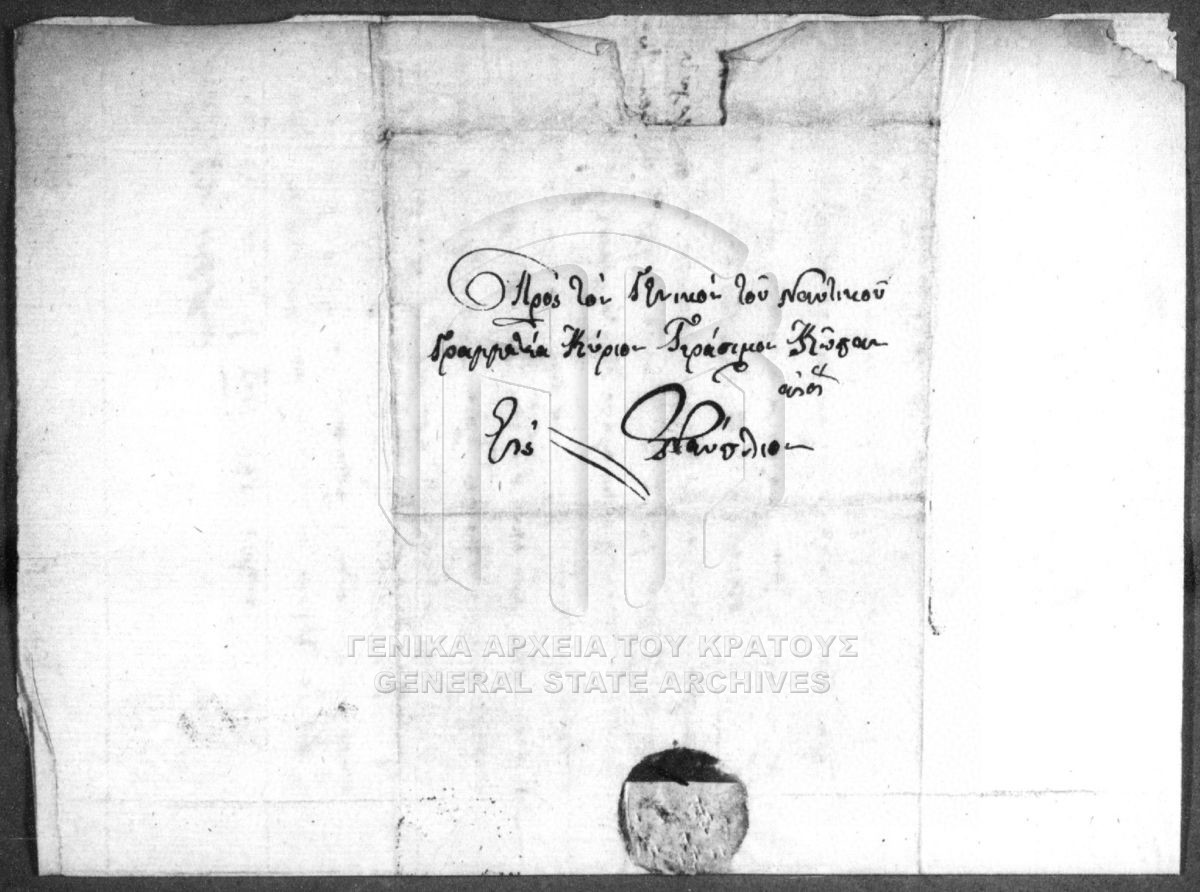 Πρὸς τὸν Γενικὸν τοῦ Ναυτικοῦ
Γραμματέα Κύριον Γεράσιμον Κῶπαν
Εἰς Ναύπλιον
ΓΕΝΙΚΑ ΑΡΧΕΙΑ ΤΟΥ ΚΡΑΤΟΥΣ
GENERAL STATE ARCHIVES